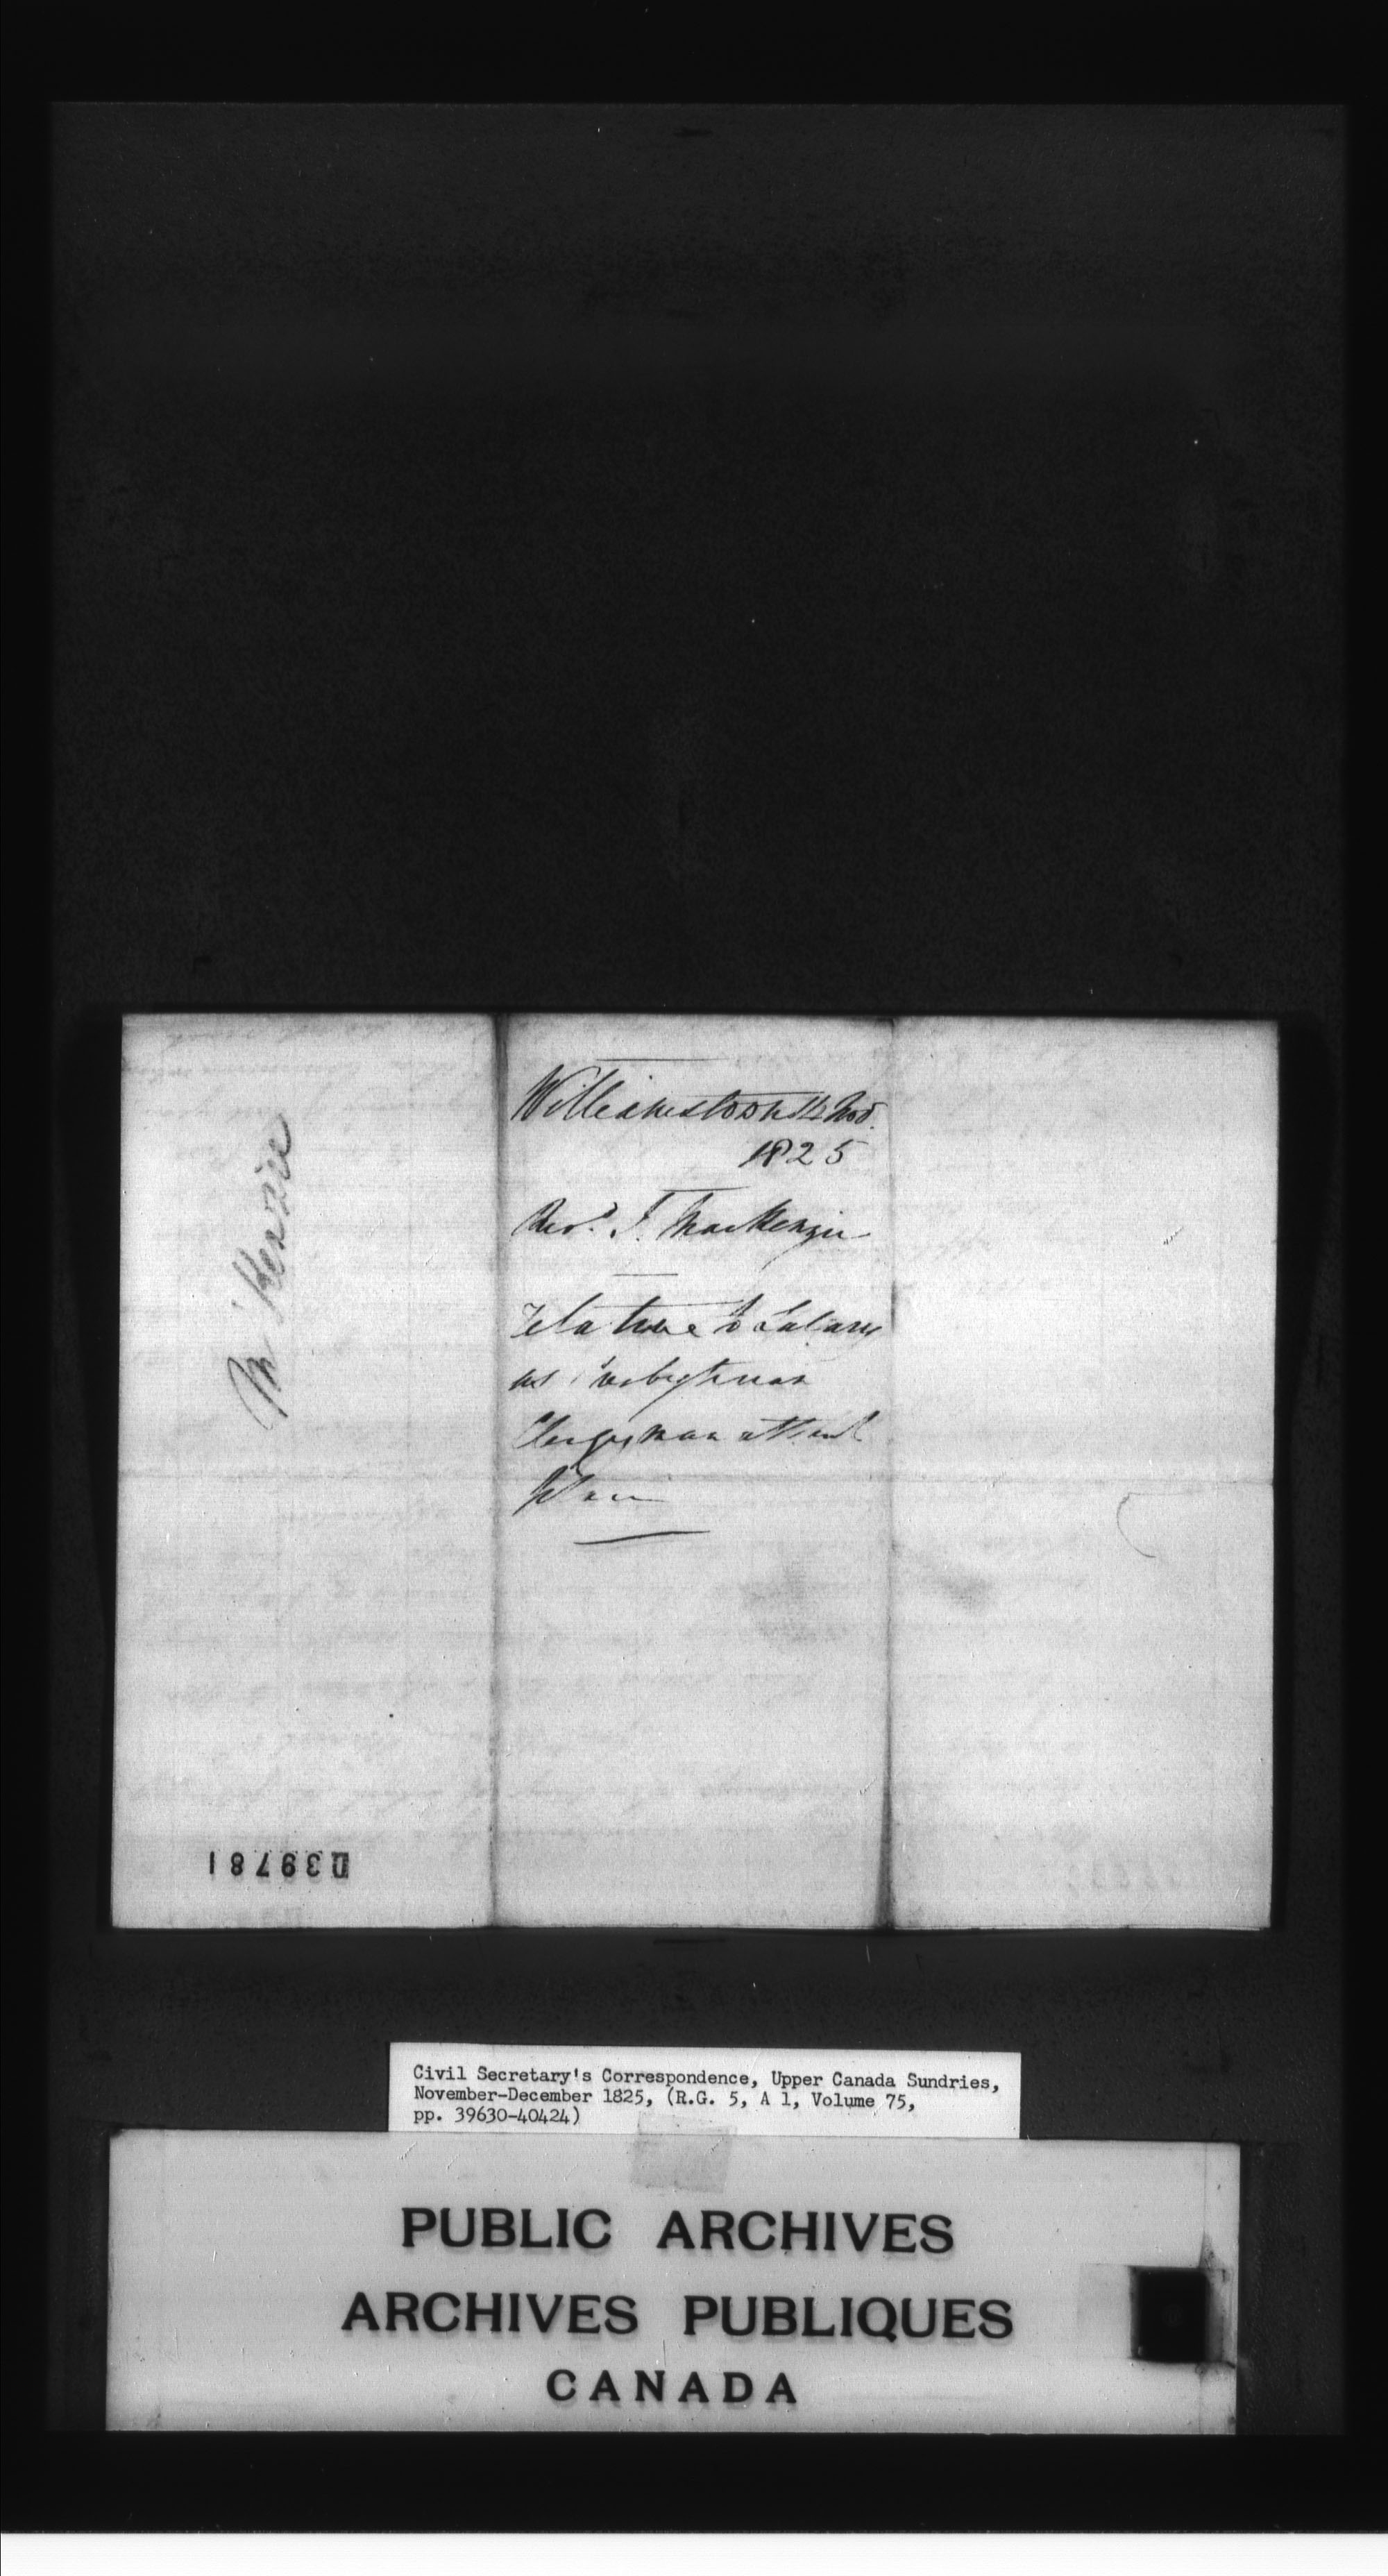 McKenzie
Williamstown 14 Nov.
1825
Revd. J. MacKenzie
relative to Salary
as Presbyterian
Clergyman at that
Place
D39781
Civil Secretary's Correspondence, Upper Canada Sundries,
November-December 1825, (R.G. 5, A 1, Volume 75,
pp. 39630-40424)
PUBLIC ARCHIVES
ARCHIVES PUBLIQUES
CANADA